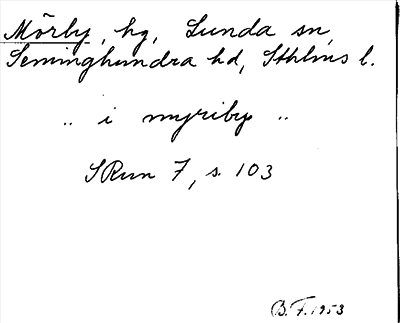 Mörby, hg, Lunda sn,
Seminghundra hd, Sthlms l.
.. i myriby ..
SRun 7, s. 103
B. F. 1953